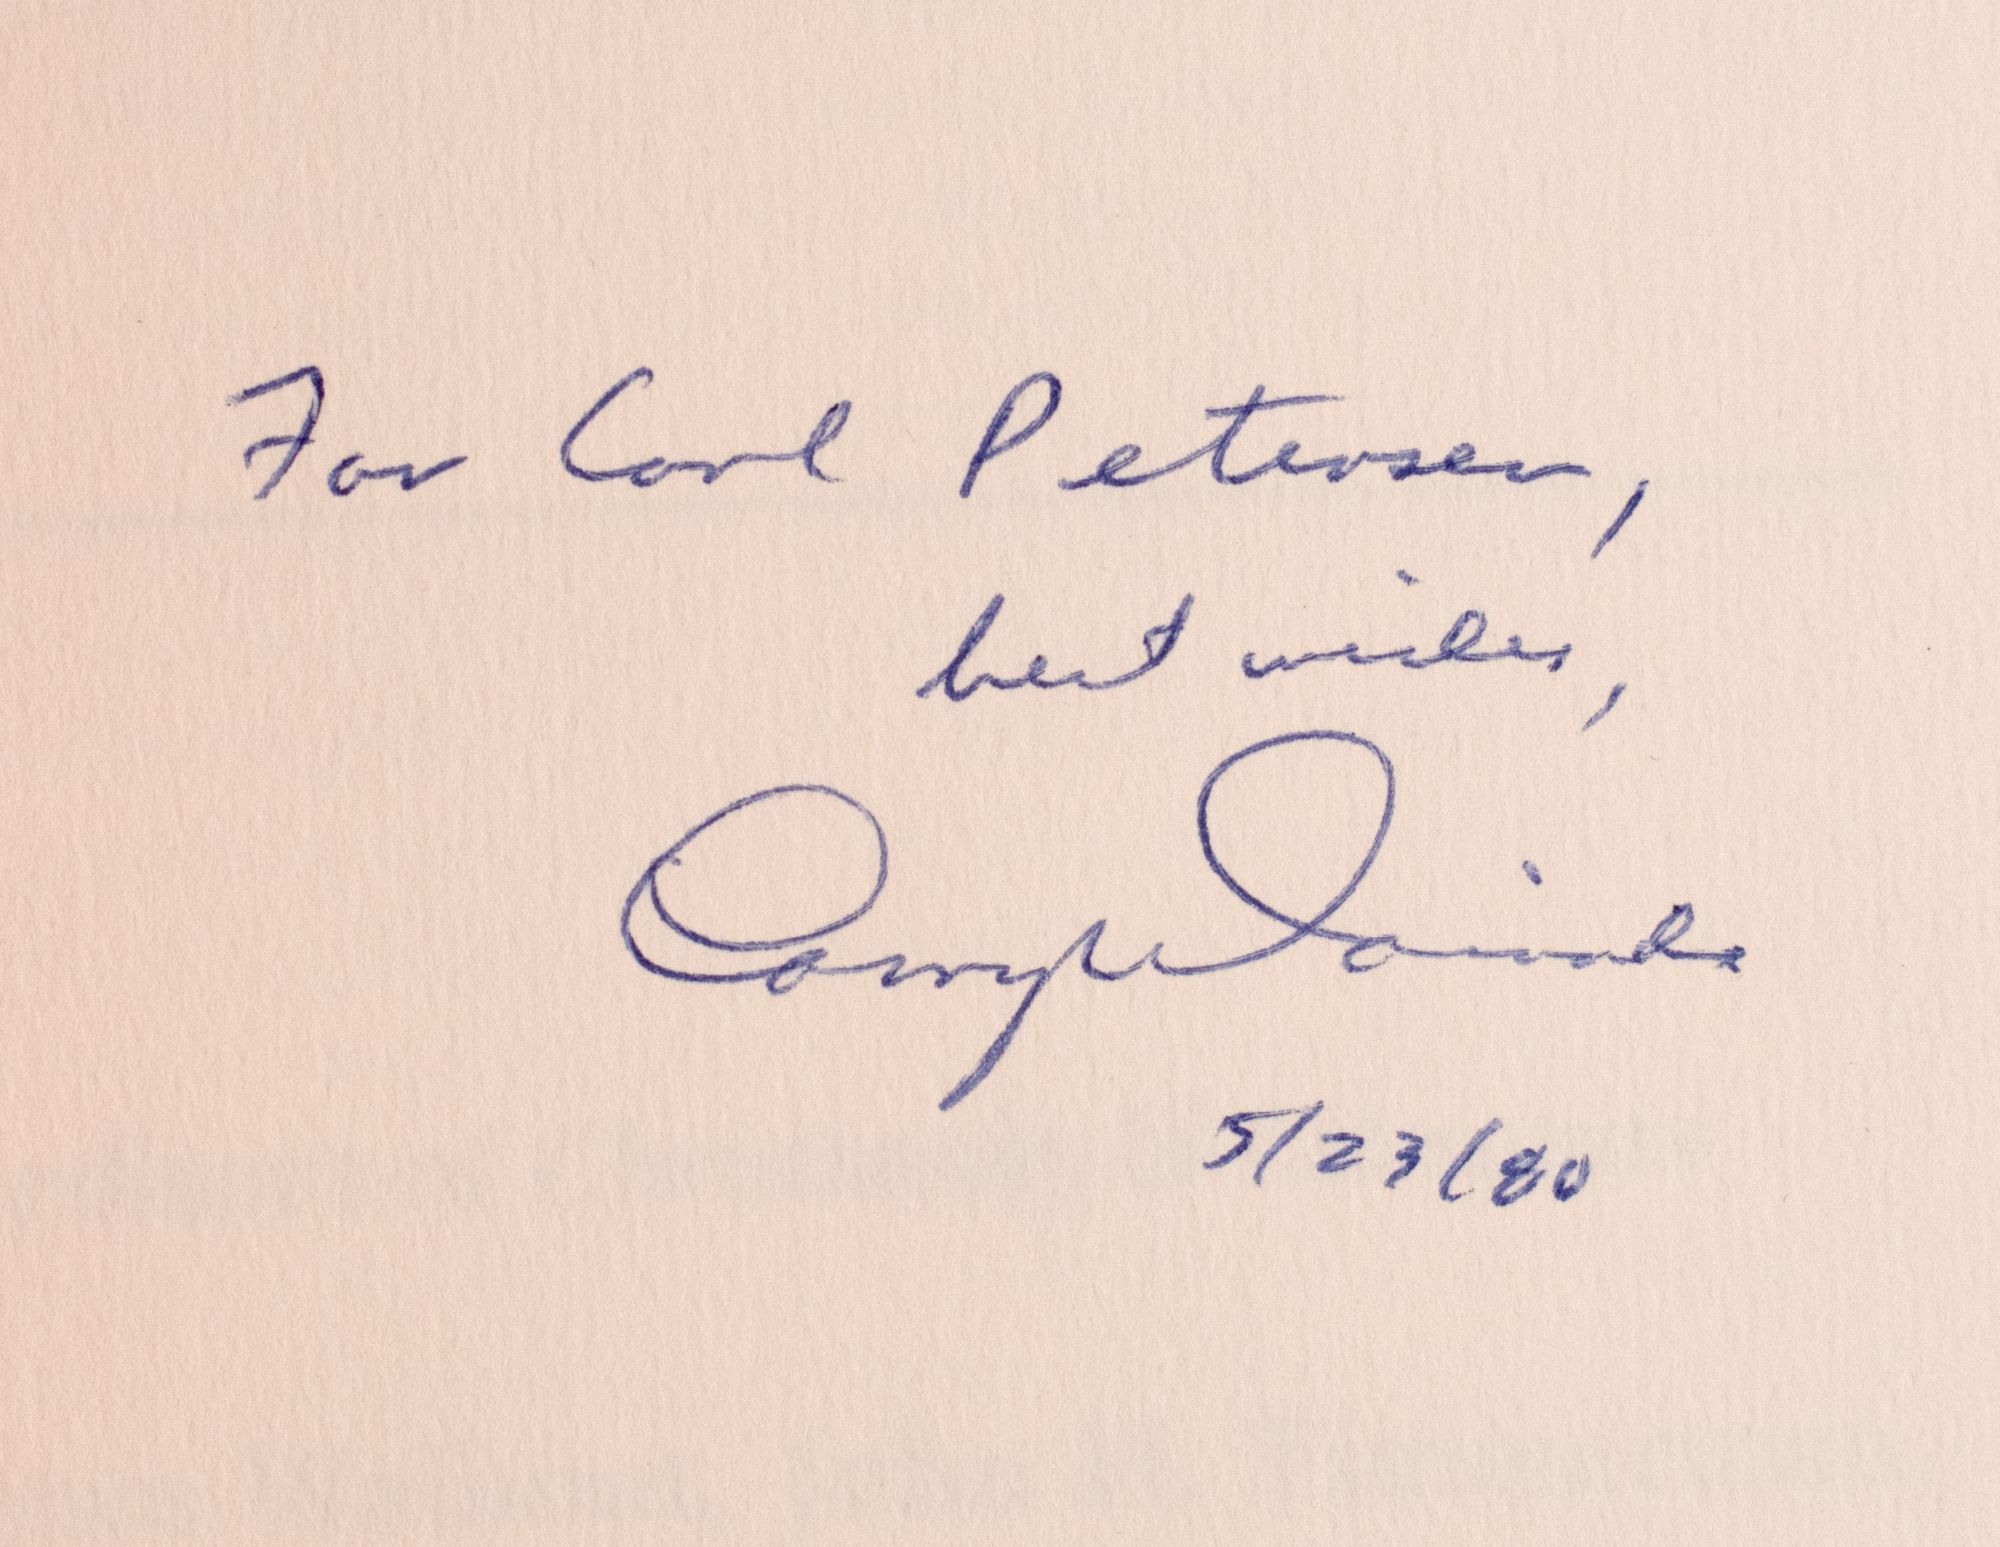 For Carl Petersen,
best wishes,
5/23/80